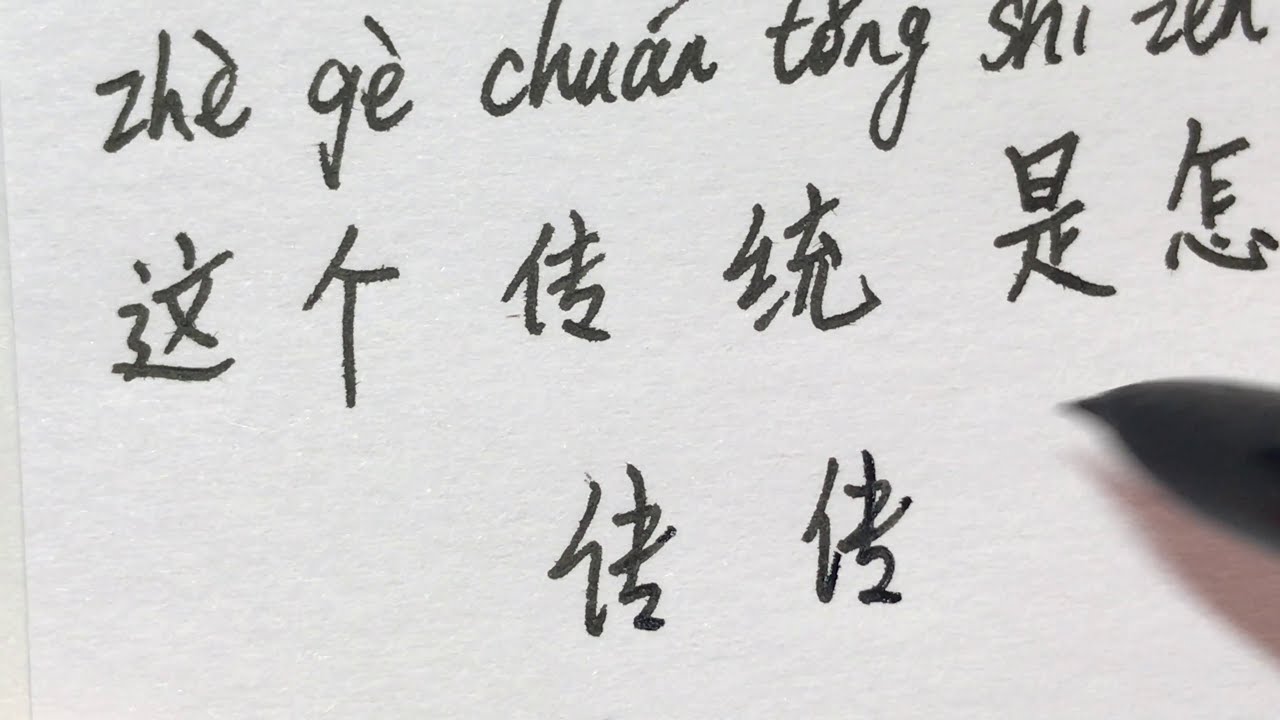 zhè gè chuán tǒng shì zěn
这个传统是怎
传传